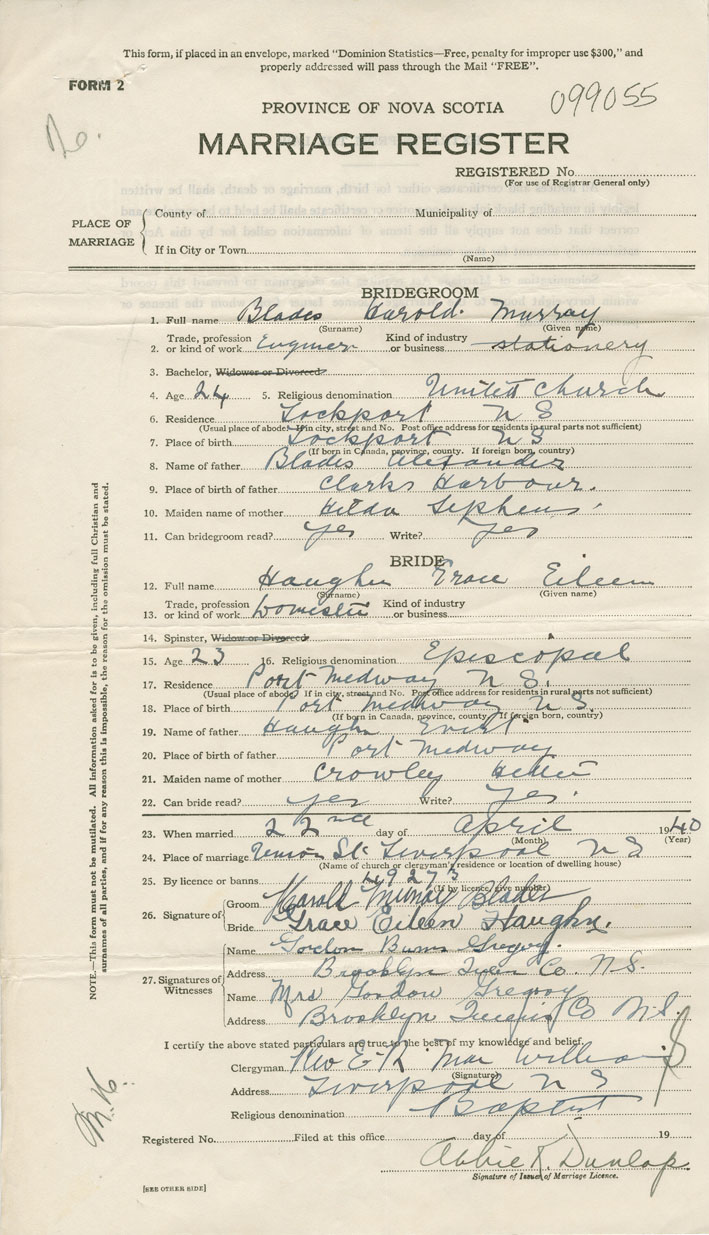 This form, if placed in an envelope, marked "Dominion Statistics—Free, penalty for improper use $300," and
properly addressed will pass through the Mail "FREE".
FORM 2
099055
PROVINCE OF NOVA SCOTIA
MARRIAGE REGISTER
REGISTERED No.
(For use of Registrar General only)
PLACE OF MARRIAGE
County of Municipality of
If in City or Town
(Name)
BRIDEGROOM
1. Full name Blades Harold Murray
(Surname) (Given name)
2. Trade, profession or kind of work Engineer Kind of industry or business stationery
3. Bachelor, Widower or Divorced
4. Age 24 5. Religious denomination United Church
6. Residence Lockport N S
(Usual place of abode. If in city, street and No. Post office address for residents in rural parts not sufficient)
7. Place of birth Lockport N S
(If born in Canada, province, county. If foreign born, country)
8. Name of father Blades Alexander
9. Place of birth of father Clarks Harbour.
10. Maiden name of mother Hilda Sephens
11. Can bridegroom read? yes Write? yes
BRIDE
12. Full name Haughn Grace Eileen
(Surname) (Given name)
13. Trade, profession or kind of work Domestic Kind of industry or business
14. Spinster, Widow or Divorced
15. Age 23 16. Religious denomination Episcopal
17. Residence Port Medway N S.
(Usual place of abode. If in city, street and No. Post office address for residents in rural parts not sufficient)
18. Place of birth Port Medway N S.
(If born in Canada, province, county. If foreign born, country)
19. Name of father Haughn Evert
20. Place of birth of father Port Medway
21. Maiden name of mother Crowley
22. Can bride read? yes Write? yes.
23. When married 22nd day of April 1940
(Month) (Year)
24. Place of marriage Union St Liverpool N S
(Name of church or clergyman's residence or location of dwelling house)
25. By licence or banns 49273
(If by licence, give number)
26. Signature of
Groom Harold Murray Blades
Bride Grace Eileen Haughn.
27. Signatures of Witnesses
Name Gordon Gregory.
Address Brooklyn Queen Co. N.S.
Name Mrs Gordon Gregory
Address Brooklyn Queens Co N.S.
I certify the above stated particulars are true to the best of my knowledge and belief.
Clergyman Rev E. R. Mac William
(Signature)
Address Liverpool N S
Religious denomination Baptist
Registered No. Filed at this office day of 19
Abbie K. Dunlap
Signature of Issuer of Marriage Licence.
[SEE OTHER SIDE]
NOTE.—This form must not be mutilated. All information asked for is to be given, including full Christian and
surnames of all parties, and if for any reason this is impossible, the reason for the omission must be stated.